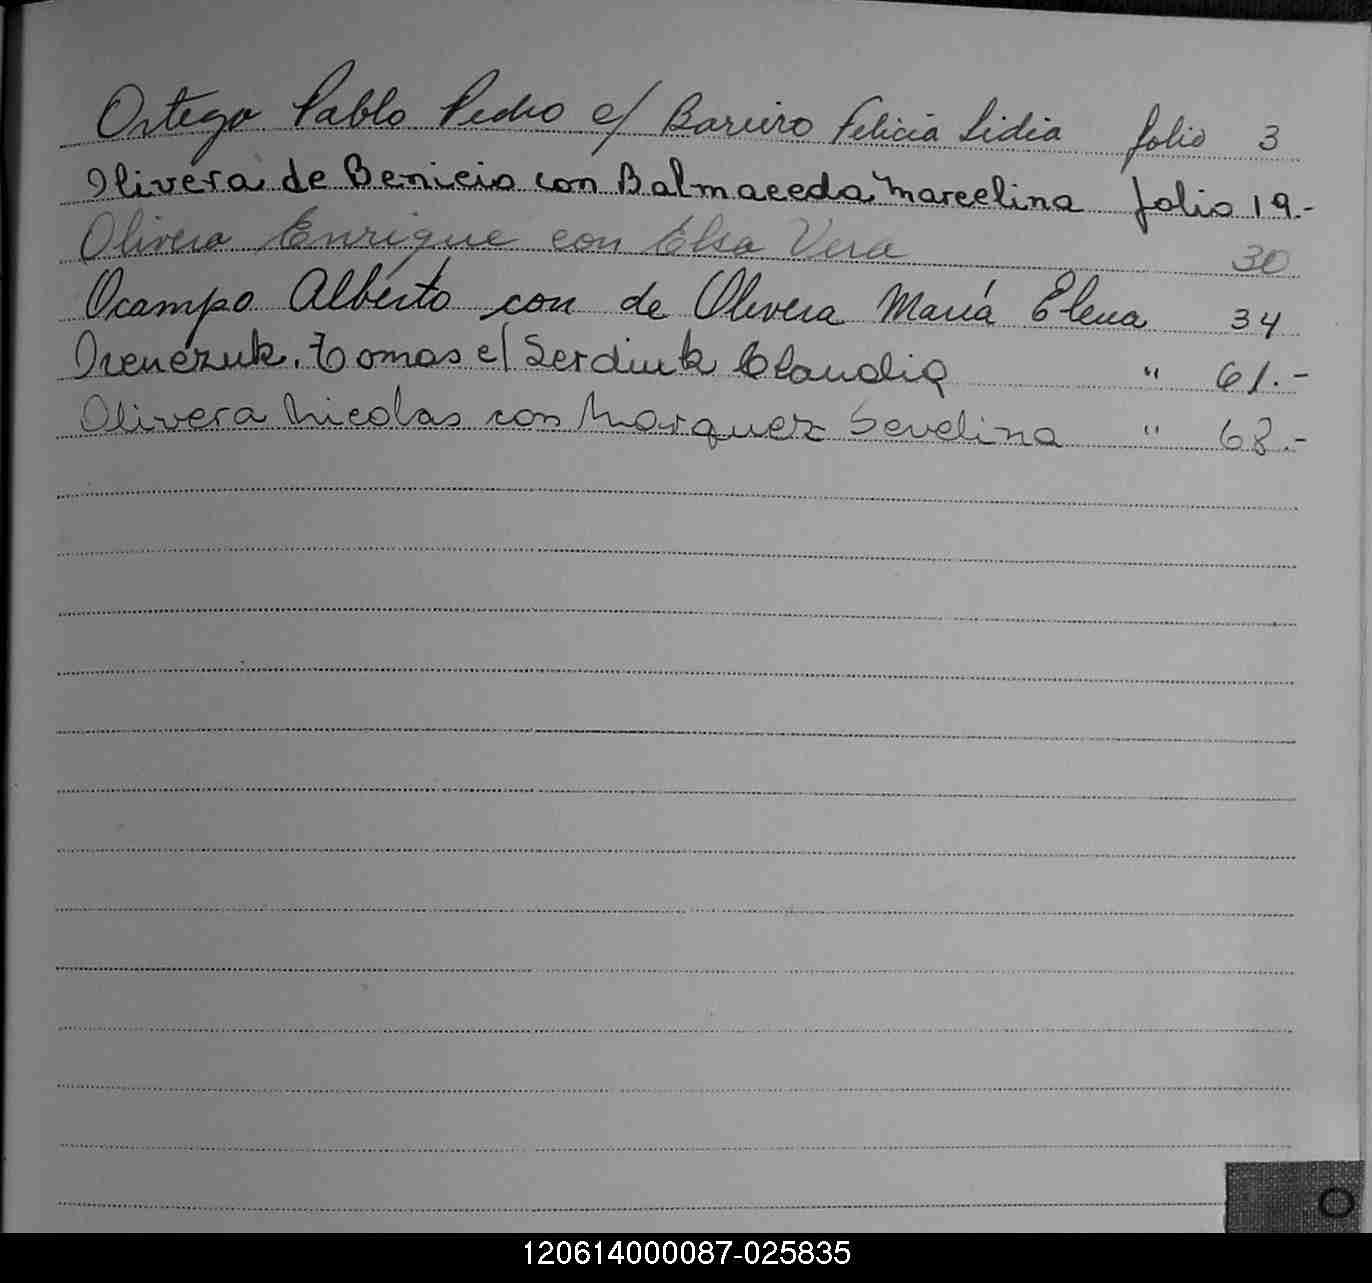 Ortega Pablo Pedro c/ Bareiro Felicia Lidia folio 3
Olivera de Benicio con Balmaceda Marcelina folio 19.-
Olivera Enrique con Elsa Vera 30
Ocampo Alberto con de Olivera María Elena 34
Tomas c/ Serdiuk Claudia " 61.-
Olivera Nicolas con Marquez Sevelina " 68.-
O
120614000087-025835